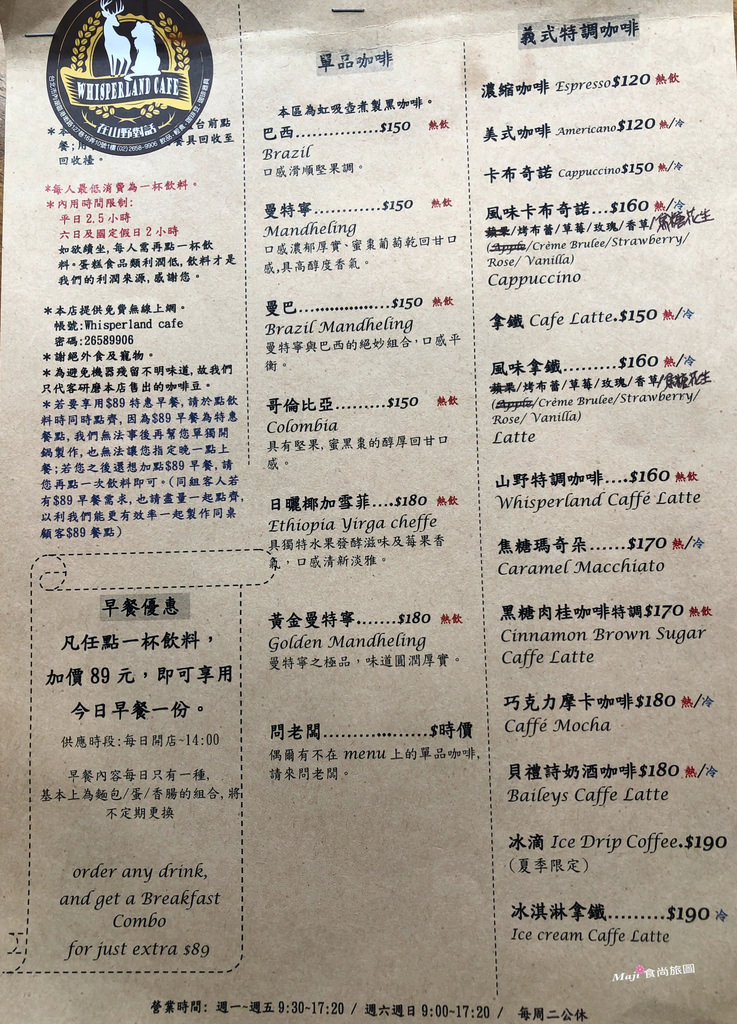 WHISPERLAND CAFE
在山野對話
(02)2658-9906
台前點
餐;用
具回收至
回收檯。
*每人最低消費為一杯飲料。
*內用時間限制:
平日2.5小時
六日及國定假日2小時
如欲續坐,每人需再點一杯飲
料。蛋糕食品類利潤低,飲料才是
我們的利潤來源,感謝您。
*本店提供免費無線上網。
帳號:Whisperland cafe
密碼:26589906
*謝絕外食及寵物。
*為避免機器殘留不明味道,故我們
只代客研磨本店售出的咖啡豆。
*若要享用$89特惠早餐,請於點飲
料時同時點齊,因為$89早餐為特惠
餐點,我們無法事後再幫您單獨開
鍋製作,也無法讓您指定晚一點上
餐;若您之後還想加點$89早餐,請
您再點一次飲料即可。(同組客人若
有$89早餐需求,也請盡量一起點齊,
以利我們能更有效率一起製作同桌
顧客$89餐點)
早餐優惠
凡任點一杯飲料,
加價89元,即可享用
今日早餐一份。
供應時段:每日開店~14:00
早餐內容每日只有一種,
基本上為麵包/蛋/香腸的組合,將
不定期更換
order any drink,
and get a Breakfast
Combo
for just extra $89
單品咖啡
本區為虹吸壺煮製黑咖啡。
巴西...............$150 熱飲
Brazil
口感滑順堅果調。
曼特寧............$150 熱飲
Mandheling
口感濃郁厚實、蜜棗葡萄乾回甘口
感,具高醇度香氣。
曼巴..................$150 熱飲
Brazil Mandheling
曼特寧與巴西的絕妙組合,口感平
衡。
哥倫比亞.........$150 熱飲
Colombia
具有堅果,蜜黑棗的醇厚回甘口
感。
日曬椰加雪菲....$180 熱飲
Ethiopia Yirga cheffe
具獨特水果發酵滋味及莓果香
氣,口感清新淡雅。
黃金曼特寧.......$180 熱飲
Golden Mandheling
曼特寧之極品,味道圓潤厚實。
問老闆..................$時價
偶爾有不在menu上的單品咖啡,
請來問老闆。
義式特調咖啡
濃縮咖啡 Espresso$120 熱飲
美式咖啡 Americano$120 熱/冷
卡布奇諾 Cappuccino$150 熱/冷
風味卡布奇諾...$160 熱/冷
蘋果/烤布蕾/草莓/玫瑰/香草/焦糖花生
(Apple/Crème Brulee/Strawberry/
Rose/ Vanilla)
Cappuccino
拿鐵 Cafe Latte.$150 熱/冷
風味拿鐵.........$160 熱/冷
蘋果/烤布蕾/草莓/玫瑰/香草/焦糖花生
(Apple/Crème Brulee/Strawberry/
Rose/ Vanilla)
Latte
山野特調咖啡....$160 熱飲
Whisperland Caffé Latte
焦糖瑪奇朵......$170 熱/冷
Caramel Macchiato
黑糖肉桂咖啡特調$170 熱飲
Cinnamon Brown Sugar
Caffe Latte
巧克力摩卡咖啡$180 熱/冷
Caffé Mocha
貝禮詩奶酒咖啡$180 熱/冷
Baileys Caffe Latte
冰滴 Ice Drip Coffee.$190
(夏季限定)
冰淇淋拿鐵.........$190 冷
Ice cream Caffe Latte
Maji 食尚旅圖
營業時間: 週一~週五 9:30-17:20 / 週六週日 9:00~17:20 / 每周二公休